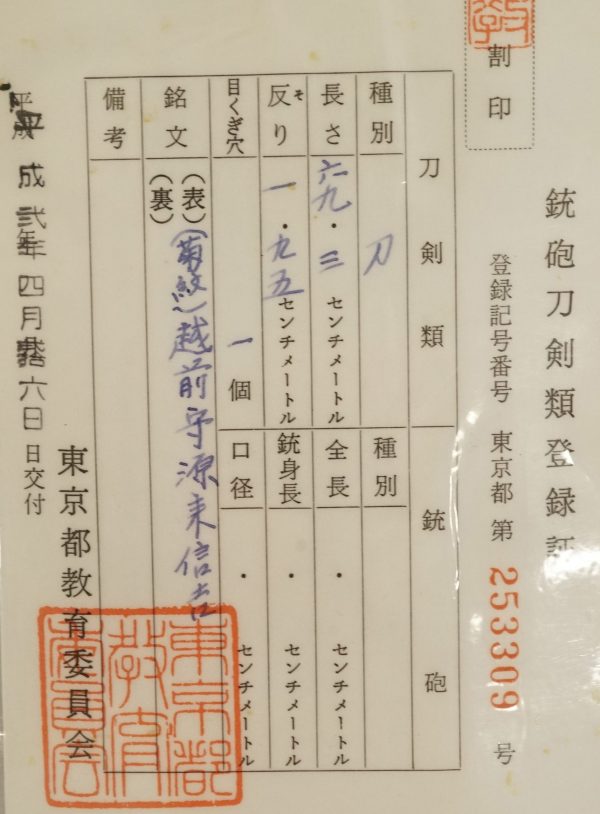 銃砲刀剣類登録証
登録記号番号 東京都 第 253309 号
割印
刀剣類
種別 刀
長さ 六九・三センチメートル
反り 一・九五センチメートル
そ
目くぎ穴 一個
銘文 (表)(菊紋)越前守源来信吉
(裏)
備考
銃砲
種別
全長 ・ センチメートル
銃身長 ・ センチメートル
口径 ・ センチメートル
平成弐年四月 六日 日交付
東京都教育委員会
東京都
教育
委員会